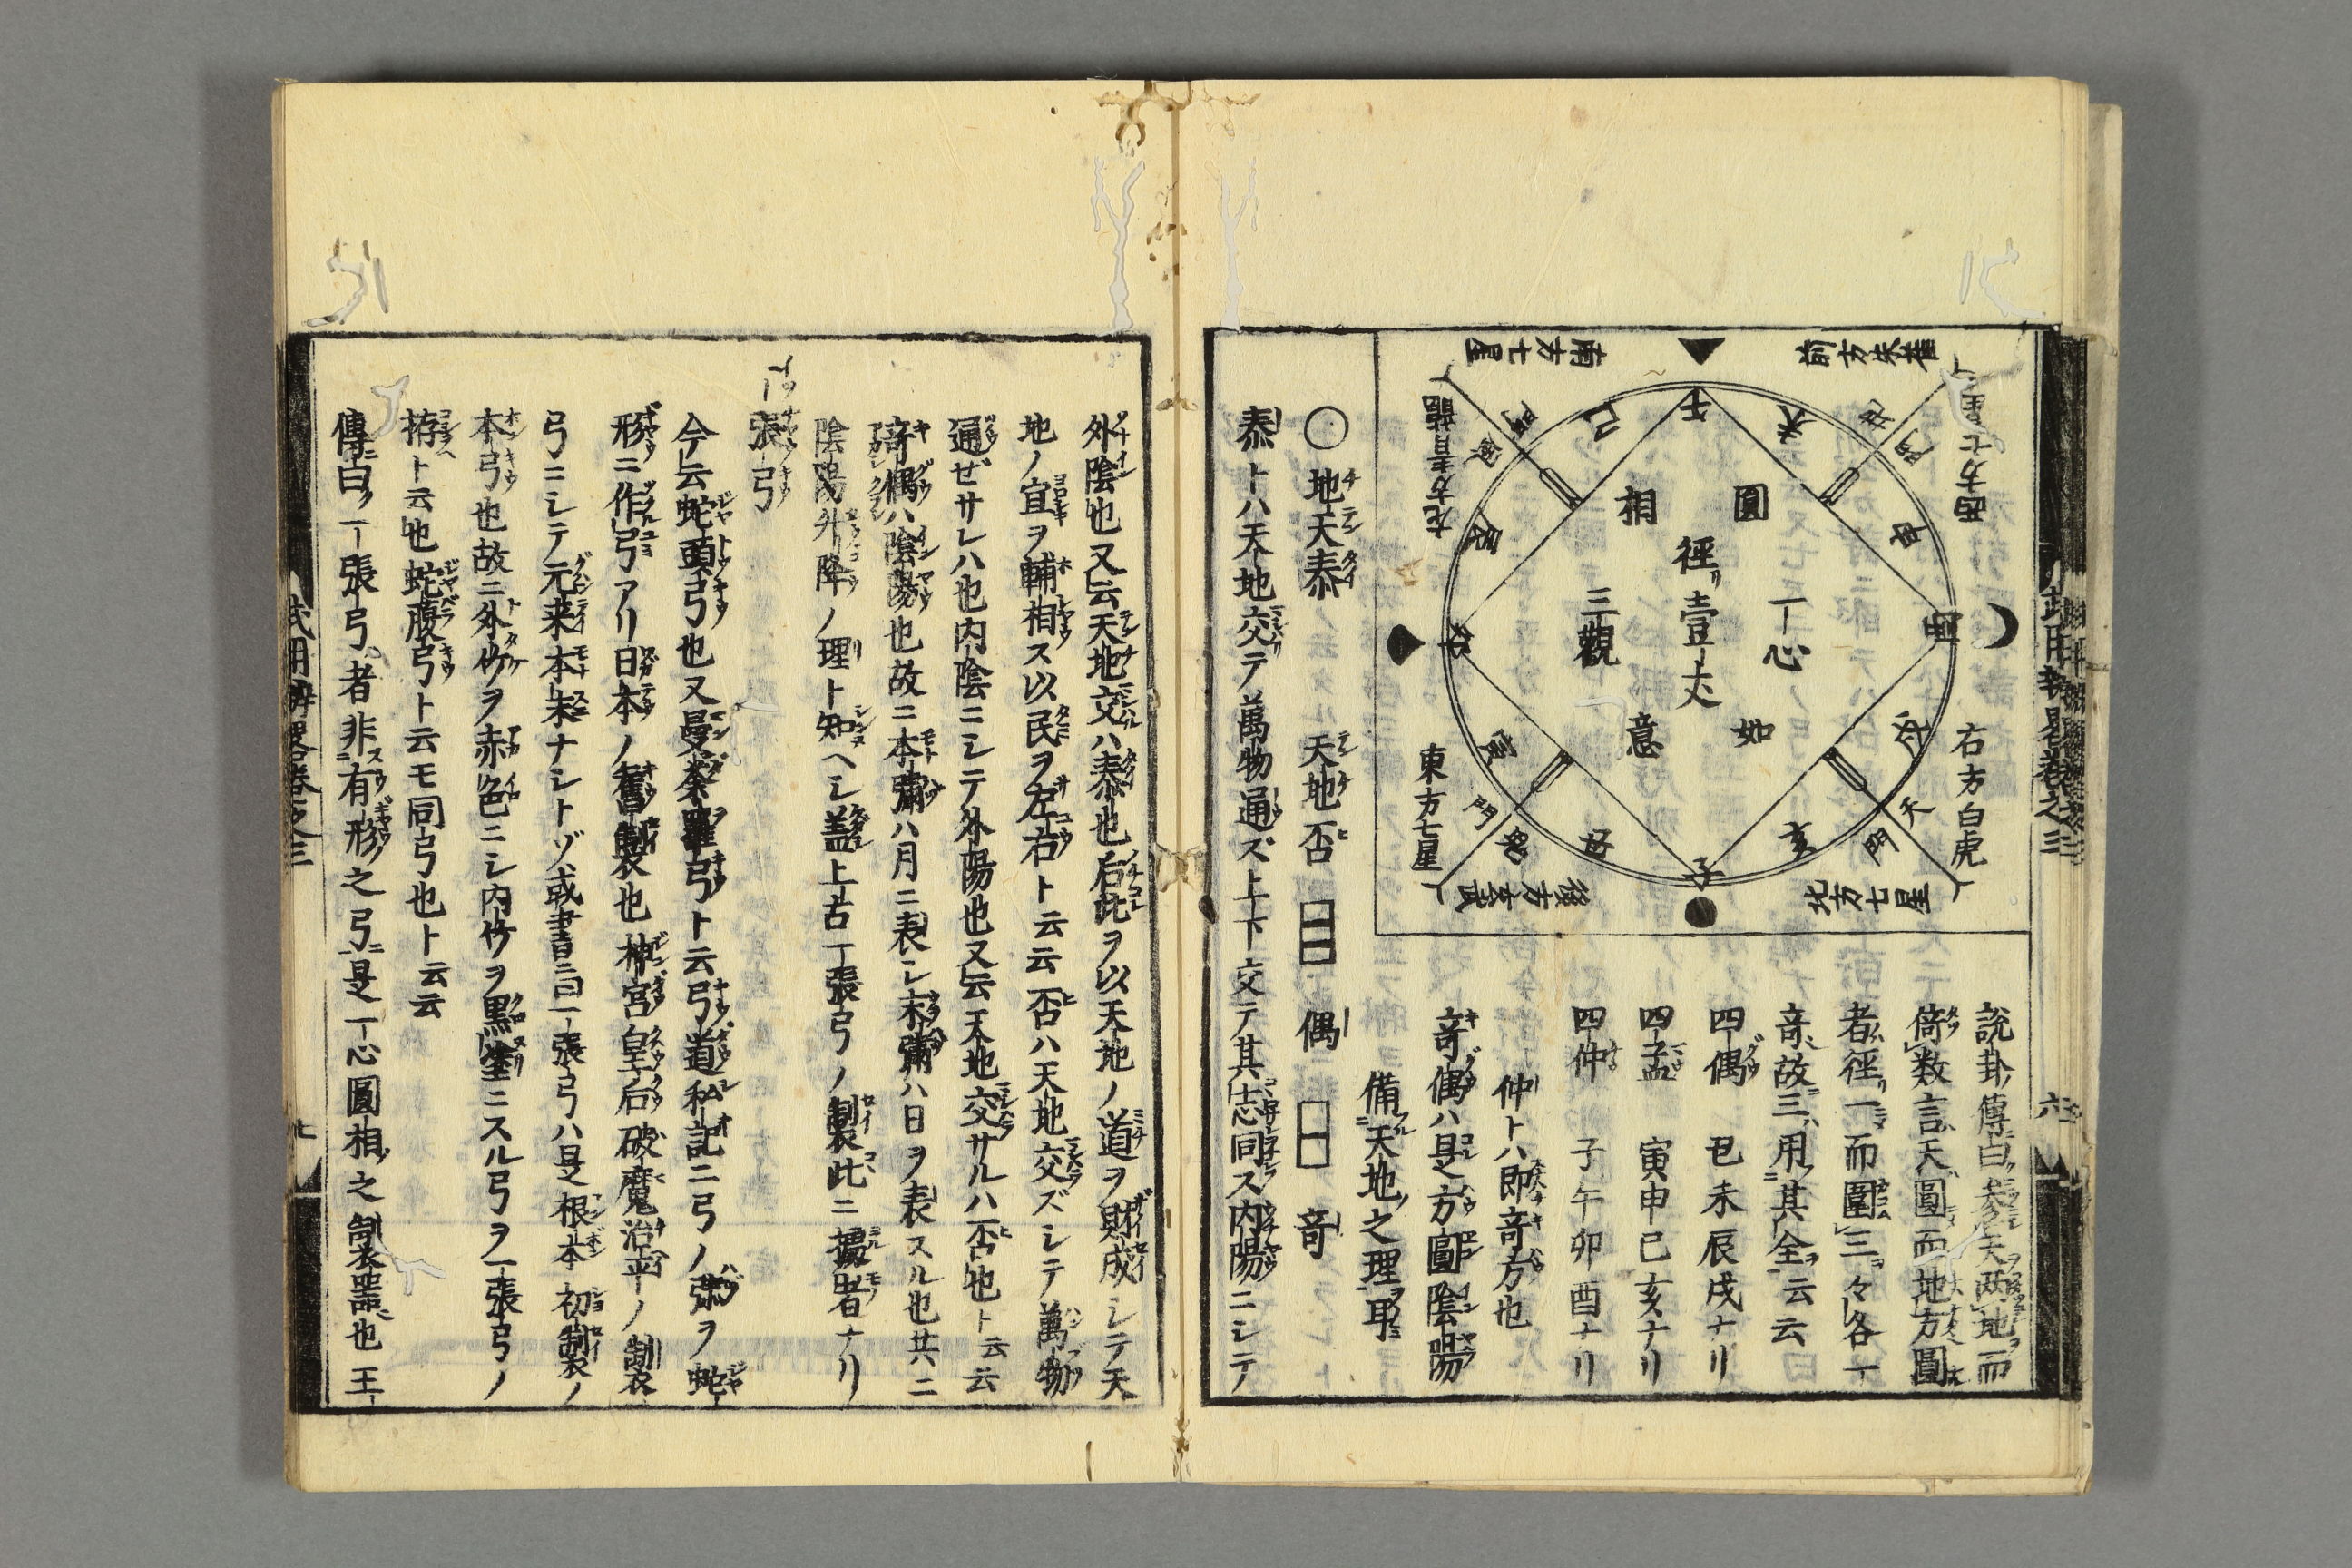 前方朱雀
南方七星
左方青龍
東方七星
後方玄武
北方七星
右方白虎
西方七星
午
未
申
酉
戌
亥
子
丑
寅
卯
辰
巳
天
門
圓
相
徑リ
壹丈
一心
三觀
如
意
説卦傳曰參天兩地而
倚数言天圓而地方圓
者徑一而圍三々各一
竒故三用其全云云
四偶 丑未辰戌ナリ
四孟 寅申巳亥ナリ
四仲 子午卯酉ナリ
仲ト八即竒方也
竒偶ハ是方圓陰陽
備天地之理耳
○地天泰 天地否 偶 竒
泰トハ天地交テ萬物通ズ上下交テ其志同ス内陽ニシテ
外陰也又云天地交ハ泰也后此ヲ以天地ノ道ヲ財成シテ天
地ノ宜ヲ輔相ス以民ヲ左右ト云云否ハ天地交ズシテ萬物
通ぜサレハ也内陰ニシテ外陽也又云天地交サルハ否也ト云云
竒偶ハ陰陽也故ニ本彌ハ月ニ表シ末彌ハ日ヲ表スル也共ニ
陰陽升降ノ理ト知ヘシ蓋上古一張弓ノ製此ニ據者ナリ
一張弓
今云蛇頭弓也又曼荼羅弓ト云弓道私記ニ弓ノ弭ヲ蛇
形ニ作弓アリ日本ノ舊製也神宮皇后破魔治平ノ製
弓ニシテ元来本末ナシトゾ或書ニ曰一張弓ハ是根本初製ノ
本弓也故ニ外竹ヲ赤色ニシ内竹ヲ黒塗ニスル弓ヲ一張弓ノ
拵ト云也蛇腹弓ト云モ同弓也ト云云
傳曰一張弓者非有形之弓是一心圓相之製器也王
武用辨畧卷之三
七